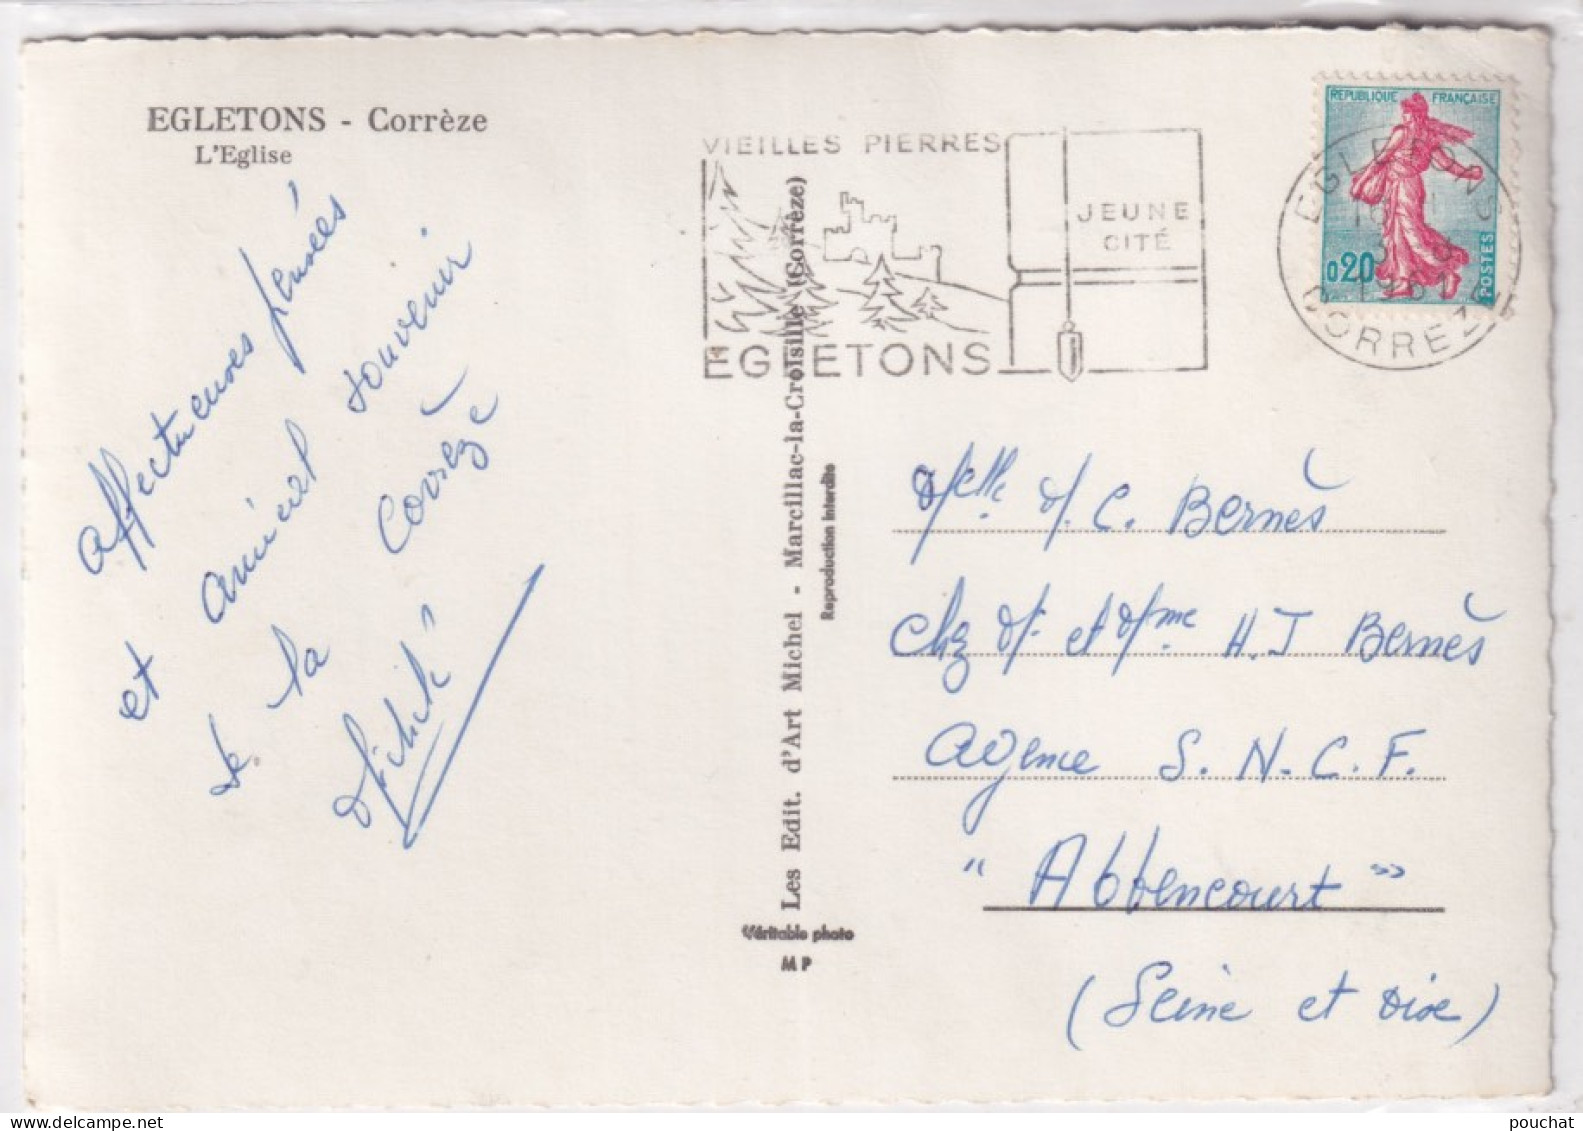 EGLETONS - Corrèze
L'Eglise
affectueuses pensées
et amical souvenir
de la Corrèze
VIEILLES PIERRES
JEUNE
CITÉ
EGLETONS
REPUBLIQUE FRANÇAISE
0,20
POSTES
EGLETONS
CORREZE
Les Edit. d'Art Michel - Marcillac-la-Croisille (Corrèze)
Reproduction interdite
Véritable photo
M P
Melle M. C. Bernès
Chz M. et Mme H. J Bernès
Agence S. N. C. F.
" Abbencourt "
(Seine et Oise)
pouchat